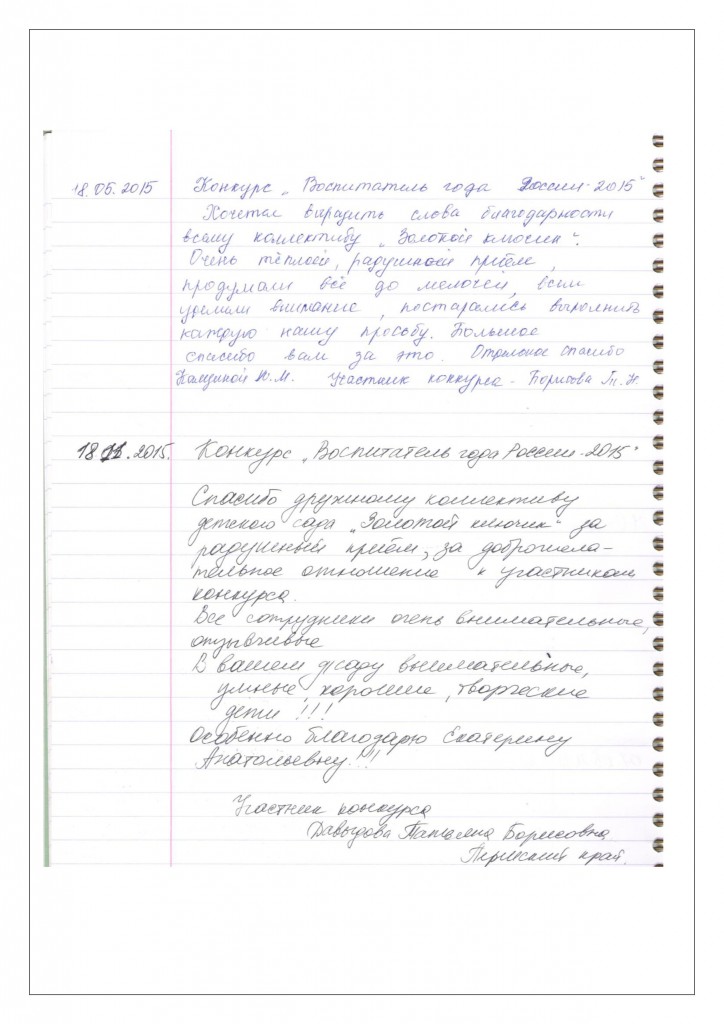 18.05.2015 Конкурс „Воспитатель года России-2015"
Хочется выразить слова благодарности
всему коллективу „Золотой ключик".
Очень тёплый, радушный приём,
продумали всё до мелочей, всем
уделили внимание, постарались выполнить
каждую нашу просьбу. Большое
спасибо вам за это. Отдельное спасибо
Ю.М. Участник конкурса - Борисова Т.Н.
18.11.2015. Конкурс „Воспитатель года России-2015"
Спасибо дружному коллективу
детского сада „Золотой ключик" за
радушный приём, за доброжела-
тельное отношение к участникам
конкурса.
Все сотрудники очень внимательные,
отзывчивые
В вашем д/саду внимательные,
умные, хорошие, творческие
дети !!!
Особенно благодарю Екатерину
Анатольевну!!!
Участник конкурса
Давыдова Татьяна Борисовна
Пермский край.